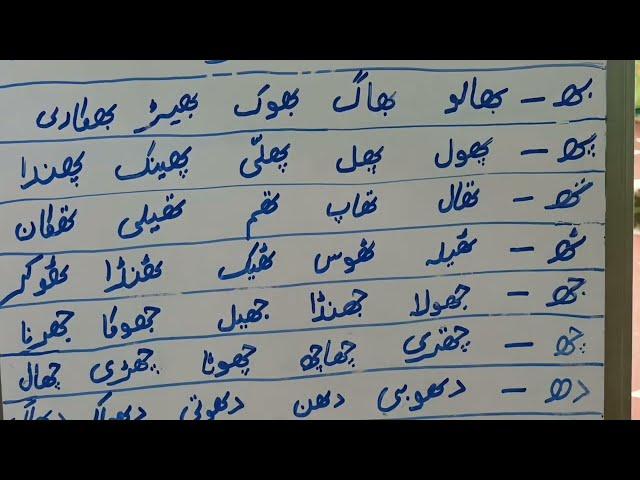 بھ – بھالو بھاگ بھوک بھیڑ بھکاری
پھ – پھول پھل پھلّی پھینک پھندا
تھ – تھال تھاپ تھم تھیلی تھکان
ٹھ – ٹھیلہ ٹھوس ٹھیک ٹھنڈا ٹھوکر
جھ – جھولا جھنڈا جھیل جھوکا جھرنا
چھ – چھتری چھاچھ چھوٹا چھڑی چھال
دھ – دھوبی دھن دھوتی